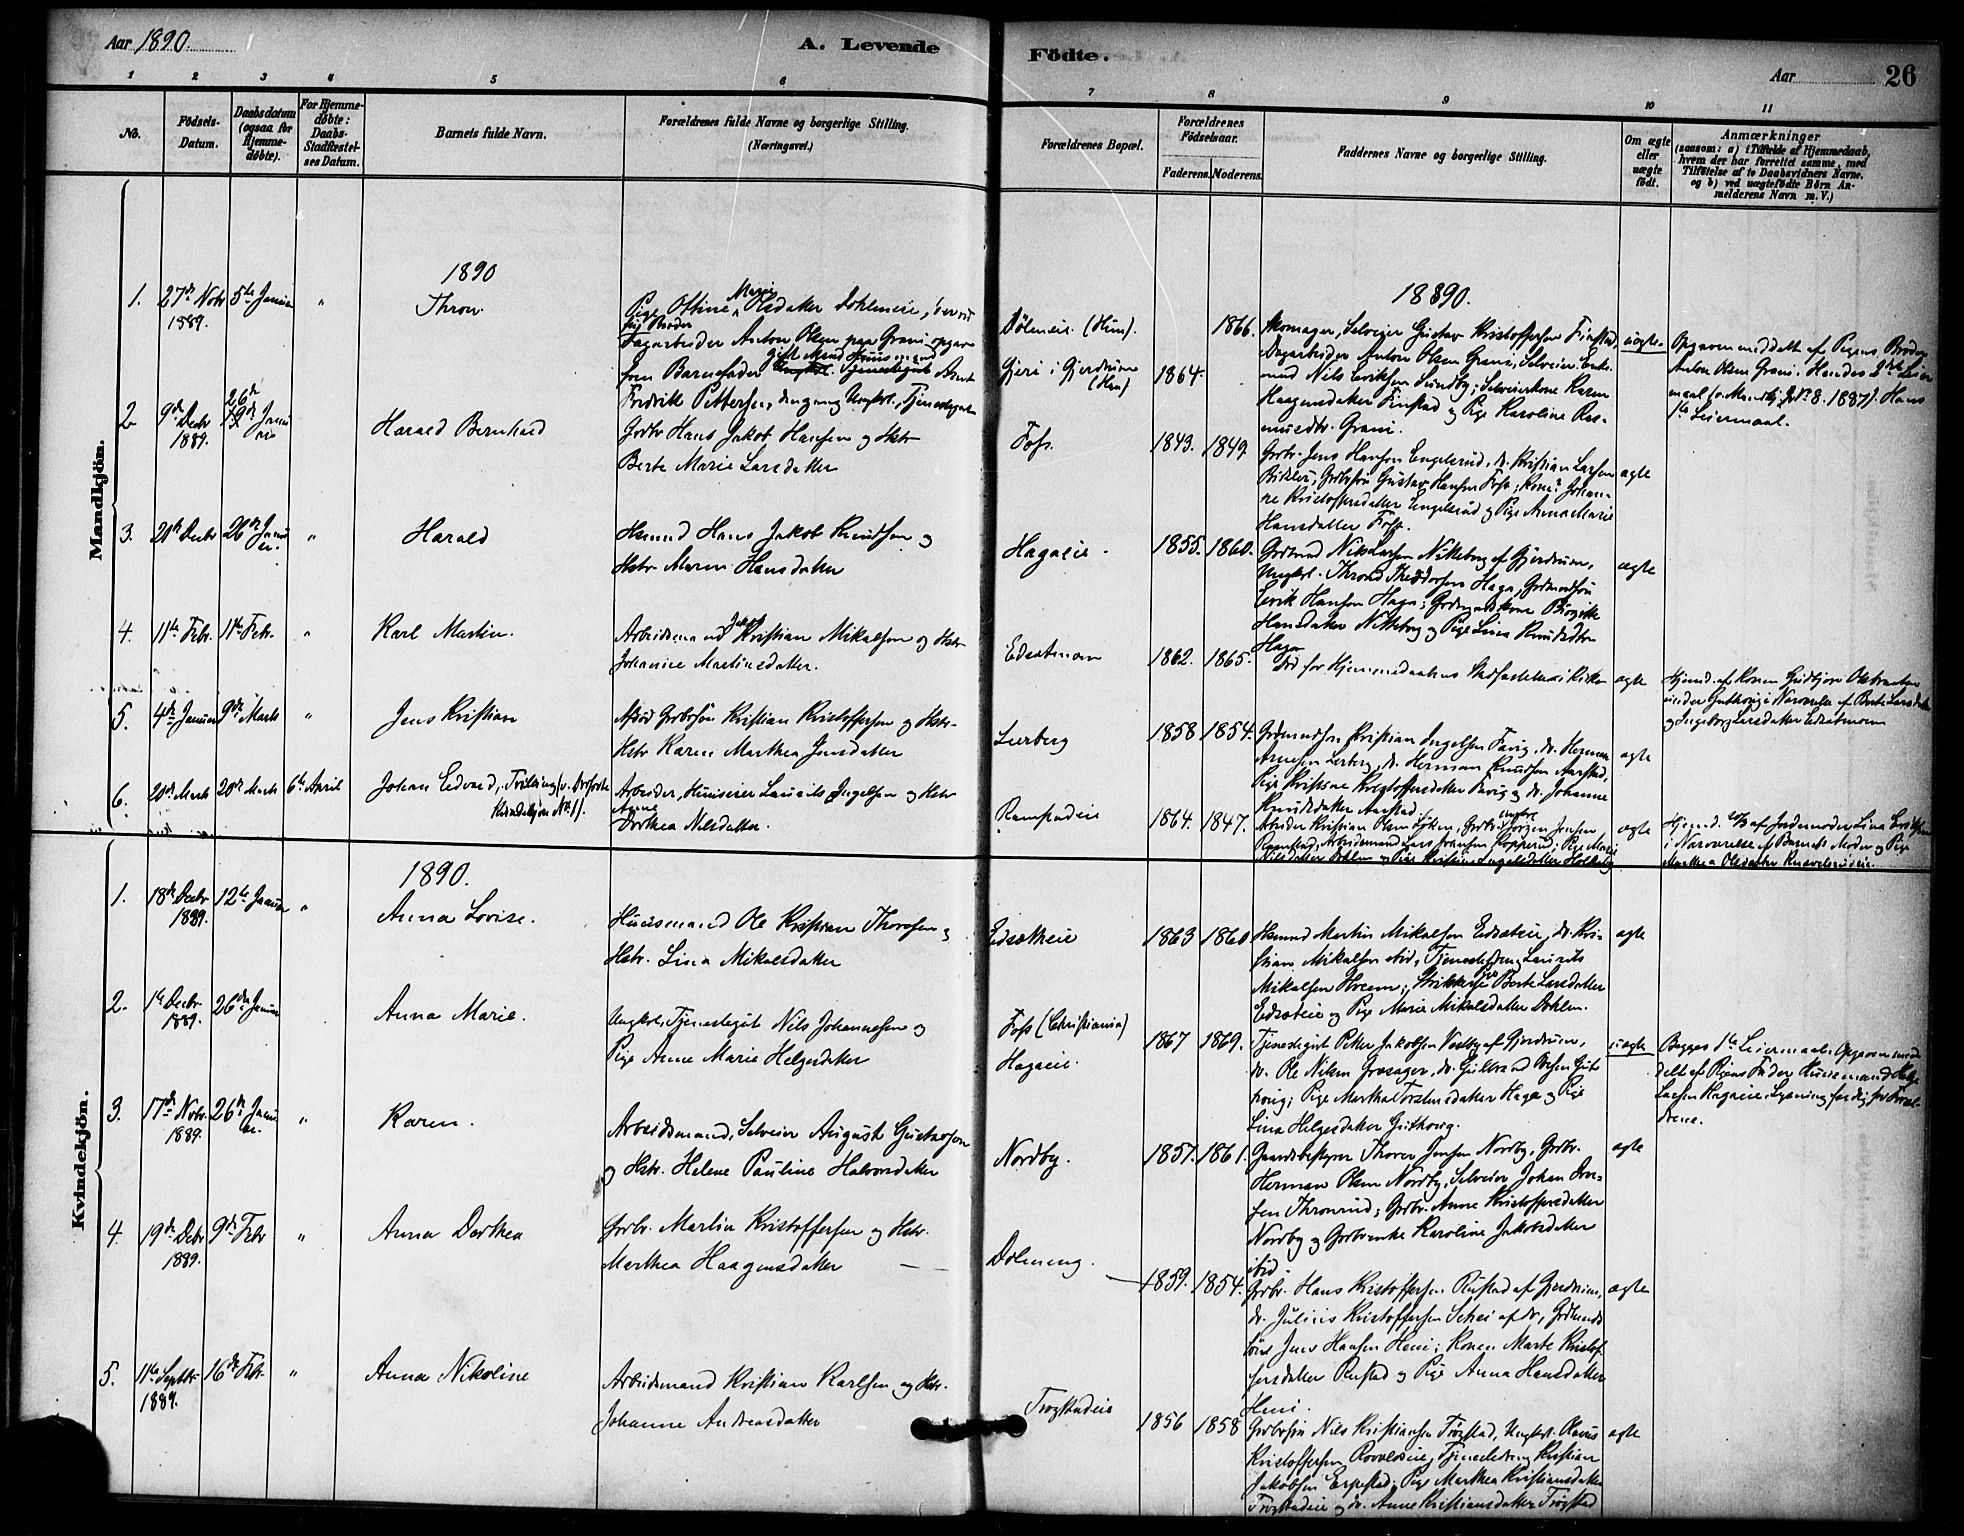 Aar 1890.
A. Levende
Födte.
Aar
26
1 2 3 4 5 6
7 8 9 10 11
No.
Födsels-
Datum.
Daabsdatum
(ogsaa for
Hjemme-
döbte).
For Hjemme-
döbte:
Daabs-
Stadfæstel-
ses Datum.
Barnets fulde Navn.
Forældrenes fulde Navne og borgerlige Stilling.
(Næringsvei.)
Forældrenes Bopæl.
Forældrenes
Födselsaar.
Faderens. Moderens.
Faddernes Navne og borgerlige Stilling.
Om ægte
eller
uægte
födt.
Anmærkninger
(saasom: a) i Tilfælde af Hjemmedaab,
hvem der har forrettet samme, med
Tilföielse af to Daabsvidners Navne.
og b) ved uægtefödte Börn An-
melderens Navn m. V.)
Mandkjön.
1890
1890.
1. 27de Novbr 5te Januar "
1889.
Thron
Pige Ottine Marie Olsdatter
Dagarbeider Anton Olsen paa Grani opgav
som Barnefader
Fredrik Pettersen,
(Heni).
Gjeri i Gjerdrum
1864. 1866.
Skomager, Selveier Gustav Kristoffersen Finstad,
Dagarbeider Anton Olsen Grani, Selveier Enke-
mand Nils Eriksen Sundby; Selveierkone Karen
Haagensdatter Finstad og Pige Karoline Ras-
musdtr. Grani.
uægte
Opgaven meddelt af Pigens Broder
Anton Olsen Grani. Hendes 2det Leier-
maal No 8. 1887). Hans
1te Leiermaal.
2 9de Decbr 26de Janu
1889.
Harald Bernhard
Grdbr Hans Jakob Hansen og Hstr
Berte Marie Larsdatter
Foss.
1843. 1849
Grdbr. Jens Hansen Engelsrud, do. Kristian Larsen
Grdbrsön Gustav Hansen Foss; Kone Johan-
ne Kristoffersdatter Engelsrud og Pige Anna Marie
Hansdatter Foss.
ægte
3. 20de Decbr 26de Januar. "
Harald
Hsmnd Hans Jakob Knudsen og
Hstr Maren Hansdatter
Hagaeie.
1855. 1860.
Grdmnd Nils Larsen Nitteberg af Gjerdrum,
Ungkrl. Thrond Theodorsen Haga, Grdmndsön
Erik Hansen Haga; Grdmandskone Birgitte
Hansdatter Nitteberg og Pige Lina Knudsdtr
Haga
ægte
4. 11te Febr. 11te Febr. "
Karl Martin.
Arbeidsmand Kristian Mikalsen og Hstr
Johanne Martinsdatter.
Edsatmoen
1862. 1865.
Död för Hjemmedaabens Stadfæstelse i Kirken
ægte
Hjemd. af Konen Gudbjör Olsbraaten
under Guthorig i Nærværelse af Berte Larsdatter
og Ingeborg Larsdatter Edsatmoen
5. 4de Januar 9de Marts "
Jens Kristian
Afdöd Grdbrsön Kristian Kristoffersen og Hstr.
Hstr Karen Marthea Jensdatter
Lerberg
1858 1854.
Grdmndsön Kristian Ingelsen Favig, do. Herman
Arnesen Lerberg, do. Herman Knudsen Aarstad,
Pige Kristiane Kristoffersdatter Favig og do. Johanne
Knudsdatter Aarstad
ægte
6. 20de Marts 20de Marts 6te April
Johan Edvard, Tvilling (v. Dödfödte
Kvindekjön No 1).
Arbeider, Huuseier Laurits Ingelsen og Hstr
Anne
Dorthea Nilsdatter.
Ramstadeie
1864. 1847.
Arbeider Kristian Olsen Lökken, Grdbr. Jörgen Jensen
Ramstad, Arbeidsmand Lars Johansen Kopperud; Pige Marie
Nilsdatter Dohlen og Pige Kristine Ingelsdatter
ægte
Hjemd. af Jordemoder Lina
i Nærværelse af Barnets Moder og Pige
Marthea Olsdatter
Kvindekjön.
1890.
1. 18de Decbr 12te Januar "
1889.
Anna Lovise.
Huusmand Ole Kristian Thoresen og
Hstr. Lina Mikalsdatter
Edsatteie
1863 1860
Hsmnd Martin Mikalsen Edsateie, do. Kri-
stian Mikalsen ibid, Tjenestedreng Laurits
Mikalsen Berte Larsdatter
Edsateie og Pige Marie Mikalsdatter Dohlen.
ægte
2. 1te Decbr. 26de Januar
1889.
Anna Marie.
Ungkrl., Tjenestegut Nils Johannesen og
Pige Anne Marie Helgesdatter
Foss (Christiania)
Hagaeie.
1867 1869.
Tjenestegut Petter Jakobsen Vestby af Gjerdrum,
do. Ole Nilsen do. Gulbrand Olsen Gut-
horig; Pige Martha Torstensdatter Haga og Pige
Lina Helgesdatter Guthorig.
uægte
Begges 1te Leiermaal. Opgaven med-
delt af Pigens Fader Huusmand Helge
Larsen Hagaeie. Lysning færdig for Foræl-
drene.
3. 17de Novbr. 26de Januar. "
1889.
Karen.
Arbeidsmand, Selveier August Gustavsen
og Hstr. Helene Pauline Halvorsdatter
Nordby.
1857. 1861.
Gaardsbestyrer Thorer Jensen Nordby, Grdbr.
Herman Olsen Nordby, Selveier Johan
sen Thronrud; Grdbr. Anne Kristoffersdatter
Nordby og Grdbrenke Karoline Jakobsdatter
ibid.
ægte
4. 19de Debr 9de Febr "
1889.
Anna Dorthea
Grdbr. Martin Kristoffersen og Hstr.
Marthea Haagensdatter
Dölneng.
1859. 1854.
Grdbr. Hans Kristoffersen Rustad af Gjerdrum,
do. Julius Kristoffersen af do., Grdbrmds-
sön Jens Hansen Heni; Konen Marte Kristof-
fersdatter Rustad og Pige Anna Hansdatter
Heni.
ægte
5. 11te Septbr. 16de Febr. "
1889.
Anna Nikoline
Arbeidsmand Kristian Karlsen og Hstr.
Johanne Andreasdatter
Trogstadeie
1856 1858
Grdbrsön Nils Kristiansen Trogstad, Ungkrl. Olaves
Kristoffersen Tjenestedreng Kristian
Jakobsen Erpestad; Pige Marthea Kristiansdatter
Trogstadeie og do. Anne Kristiansdatter Trogstad
ægte